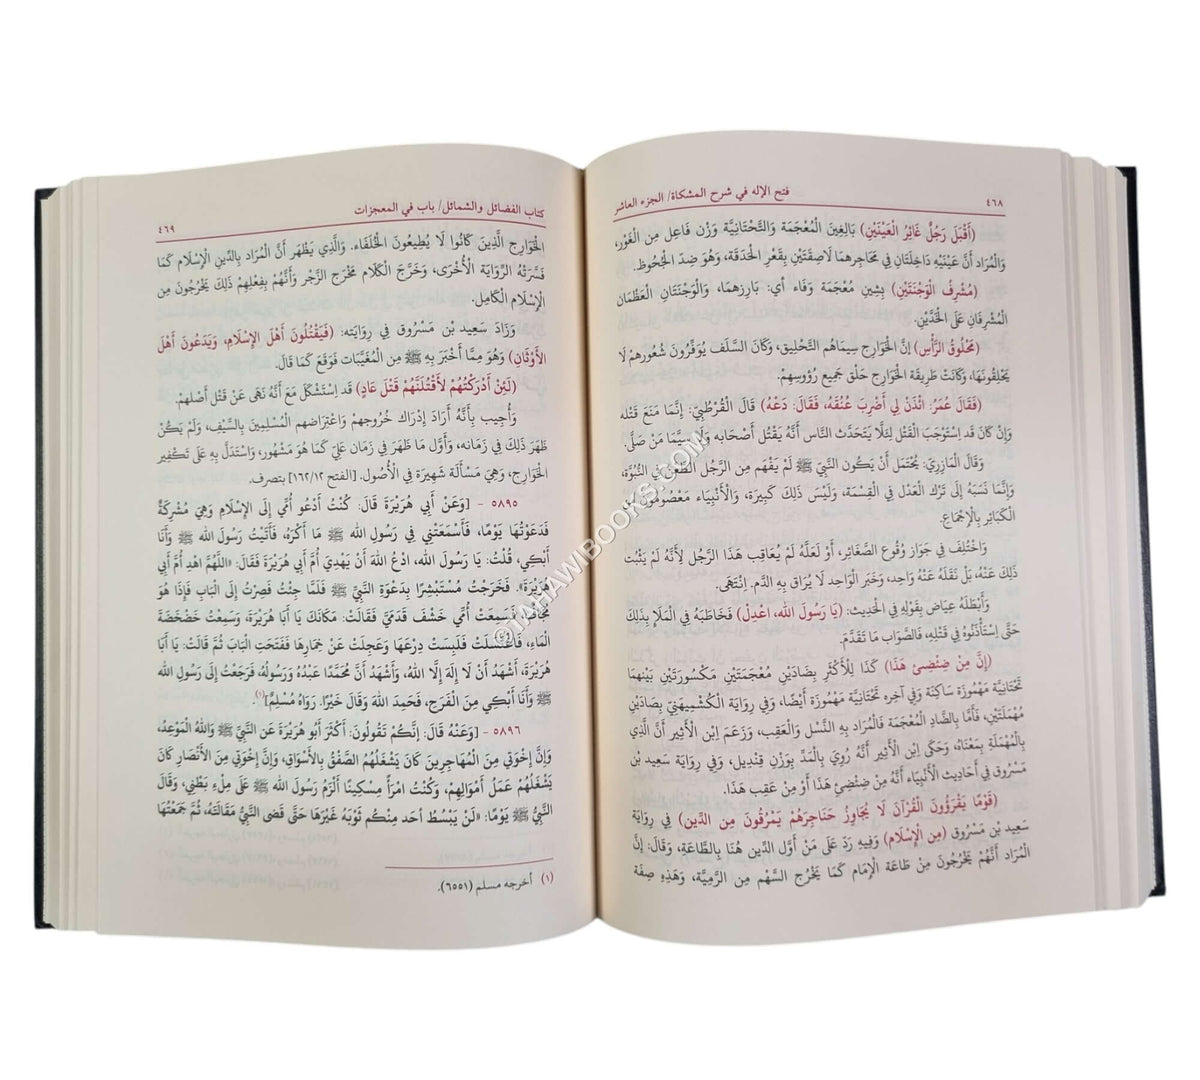 ٤٦٨
فتح الإله في شرح المشكاة/ الجزء العاشر
(أَقْبَلَ رَجُلٌ غَائِرُ العَيْنَيْنِ) بِالغِينَ الْمُعْجَمَةِ وَالتَّحْتَانِيَّةِ وَزْن فَاعِل مِن الغَوْر،
وَالْمُرَاد أَنَّ عَيْنَيْهِ دَاخِلَتَانِ في مَحَاجِرِهمَا لَاصِقَتَيْنِ بِقَعْرِ الحَدَقَة، وَهُوَ ضِدّ الجُحُوظ.
(مُشْرِف الْوَجْنَتَيْنِ) بِشِينِ مُعْجَمَة وَفَاء أي: بَارِزهمَا، وَالْوَجْنَتَانِ الْعَظْمَان
الْمُشْرِفَانِ عَلَى الخَدَّيْنِ.
(مَحْلُوقُ الرَّأْسِ) إنَّ الخَوَارِج سِيمَاهُم التَّحْلِيق، وَكَانَ السَّلَف يُوَفِّرُونَ شُعُورهمْ لَا
يَحْلِقُونَهَا، وَكَانَتْ طَرِيقَة الخَوَارِج حَلْق جَمِيع رُؤُوسِهِمْ.
(فَقَالَ عُمَرُ: ائْذَنْ لِي أَضْرِبَ عُنُقَهُ، فَقَالَ: دَعْهُ) قَالَ القُرْطُبِيّ: إِنَّمَا مَنَعَ قَتْله
وَإِنْ كَانَ قَد اِسْتَوْجَبَ القَتْل لِئَلَّا يَتَحَدَّث النَّاس أَنَّهُ يَقْتُل أَصْحَابه وَلَا سِيَّمَا مَنْ صَلَّى.
وَقَالَ الْمَازِرِيّ: يُحْتَمَل أَنْ يَكُون النَّبِيّ ﷺ لَمْ يَفْهَم مِن الرَّجُل الطَّعْن في النُّبُوَّة،
وَإِنَّمَا نَسَبَهُ إِلَى تَرْك العَدْل في القِسْمَة، وَلَيْسَ ذَلِكَ كَبِيرَة، وَالْأَنْبِيَاء مَعْصُومُونَ مِن
الْكَبَائِر بِالْإِجْمَاعِ.
وَاخْتُلِفَ في جَوَاز وُقُوع الصَّغَائِر، أو لَعَلَّهُ لَمْ يُعَاقِب هَذَا الرَّجُل لِأَنَّهُ لَمْ يَثْبُت
ذَلِكَ عَنْهُ، بَلْ نَقَلَهُ عَنْهُ وَاحِد، وَخَبَر الْوَاحِد لَا يُرَاق بِهِ الدَّم. اِنْتَهَى.
وَأَبْطَلَهُ عِيَاض بِقَوْلِهِ في الحَدِيث: (يَا رَسُولَ اللهِ، اعْدِلْ) فَخَاطَبَهُ في الْمَلَإِ بِذَلِكَ
حَتَّى اِسْتَأْذَنُوهُ في قَتْله، فَالصَّوَاب مَا تَقَدَّمَ.
(إِنَّ مِنْ ضِئْضِئِ هَذَا) كَذَا لِلْأَكْثَرِ بِضَادَيْنِ مُعْجَمَتَيْنِ مَكْسُورَتَيْنِ بَيْنهمَا
تَحْتَانِيَّة مَهْمُوزَة سَاكِنَة وَفي آخِره تَحْتَانِيَّة مَهْمُوزَة أَيْضًا، وَفي رِوَايَة الْكُشْمِيهَنِيِّ بِصَادَيْنِ
مُهْمَلَتَيْنِ، فَأَمَّا بِالضَّادِ الْمُعْجَمَة فَالْمُرَاد بِهِ النَّسْل وَالْعَقِب، وَزَعَمَ اِبْن الْأَثِير أَنَّ الَّذِي
بِالْمُهْمَلَةِ بِمَعْنَاهُ، وَحَكَى اِبْن الْأَثِير أَنَّهُ رُوِيَ بِالْمَدِّ بِوَزْنِ قِنْدِيل، وَفي رِوَايَة سَعِيد بْن
مَسْرُوق في أَحَادِيث الْأَنْبِيَاء أَنَّهُ مِنْ ضِئْضِئِ هَذَا أَوْ مِنْ عَقِب هَذَا.
(قَوْمًا يَقْرَؤُونَ القُرْآنَ لَا يُجَاوِزُ حَنَاجِرَهُمْ يَمْرُقُونَ مِن الدِّينِ) في رِوَايَة
سَعِيد بْن مَسْرُوق (مِن الْإِسْلَام) وَفِيهِ رَدّ عَلَى مَنْ أَوَّلَ الدِّين هُنَا بِالطَّاعَةِ، وَقَالَ: إِنَّ
الْمُرَاد أَنَّهُمْ يَخْرُجُونَ مِنْ طَاعَة الْإِمَام كَمَا يَخْرُج السَّهْم مِن الرَّمِيَّة، وَهَذِهِ صِفَة
كتاب الفضائل والشمائل/ باب في المعجزات
٤٦٩
الخَوَارِج الَّذِينَ كَانُوا لَا يُطِيعُونَ الخُلَفَاء. وَالَّذِي يَظْهَر أَنَّ الْمُرَاد بِالدِّينِ الْإِسْلَام كَمَا
فَسَّرَتْهُ الرِّوَايَة الْأُخْرَى، وَخَرَجَ الْكَلَام مَخْرَج الزَّجْر وَأَنَّهُمْ بِفِعْلِهِمْ ذَلِكَ يَخْرُجُونَ مِنَ
الْإِسْلَام الْكَامِل.
وَزَادَ سَعِيد بْن مَسْرُوق في رِوَايَته: (فَيَقْتُلُونَ أَهْلَ الإِسْلَامِ، وَيَدَعُونَ أَهْلَ
الأَوْثَانِ) وَهُوَ مِمَّا أَخْبَرَ بِهِ ﷺ مِن الْمُغَيَّبَات فَوَقَعَ كَمَا قَالَ.
(لَئِنْ أَدْرَكْتُهُمْ لأَقْتُلَنَّهُمْ قَتْلَ عَادٍ) قَد اِسْتَشْكَلَ مَعَ أَنَّهُ نَهَى عَنْ قَتْل أَصْلهمْ.
وَأُجِيب بِأَنَّهُ أَرَادَ إِدْرَاك خُرُوجهمْ وَاعْتِرَاضهم الْمُسْلِمِينَ بِالسَّيْفِ، وَلَمْ يَكُنْ
ظَهَرَ ذَلِكَ في زَمَانه، وَأَوَّل مَا ظَهَرَ في زَمَان عَلِيّ كَمَا هُوَ مَشْهُور، وَاسْتَدَلَّ بِهِ عَلَى تَكْفِير
الخَوَارِج، وَهِيَ مَسْأَلَة شَهِيرَة في الْأُصُول. [الفتح ١٦٢/١٢] بتصرف.
٥٨٩٥ - [وَعَنْ أَبِي هُرَيْرَةَ قَالَ: كُنْتُ أَدْعُو أُمِّي إِلَى الإِسْلَامِ وَهِيَ مُشْرِكَةٌ
فَدَعَوْتُهَا يَوْمًا، فَأَسْمَعَتْنِي فِي رَسُولِ اللهِ ﷺ مَا أَكْرَهُ، فَأَتَيْتُ رَسُولَ اللهِ ﷺ وَأَنَا
أَبْكِي، قُلْتُ: يَا رَسُولَ اللهِ، ادْعُ اللهَ أَنْ يَهْدِيَ أُمَّ أَبِي هُرَيْرَةَ فَقَالَ: «اللَّهُمَّ اهْدِ أُمَّ أَبِي
هُرَيْرَةَ». فَخَرَجْتُ مُسْتَبْشِرًا بِدَعْوَةِ النَّبِيِّ ﷺ فَلَمَّا جِئْتُ فَصِرْتُ إِلَى الْبَابِ فَإِذَا هُوَ
مُجَافٌ، فَسَمِعَتْ أُمِّي خَشْفَ قَدَمَيَّ فَقَالَتْ: مَكَانَكَ يَا أَبَا هُرَيْرَةَ، وَسَمِعْتُ خَضْخَضَةَ
الْمَاءِ، فَاغْتَسَلَتْ فَلَبِسَتْ دِرْعَهَا وَعَجِلَتْ عَنْ خِمَارِهَا فَفَتَحَتِ الْبَابَ ثُمَّ قَالَتْ: يَا أَبَا
هُرَيْرَةَ، أَشْهَدُ أَنْ لَا إِلَهَ إِلَّا اللهُ، وَأَشْهَدُ أَنَّ مُحَمَّدًا عَبْدُهُ وَرَسُولُهُ، فَرَجَعْتُ إِلَى رَسُولِ اللهِ
ﷺ وَأَنَا أَبْكِي مِنَ الْفَرَحِ، فَحَمِدَ اللهَ وَقَالَ خَيْرًا. رَوَاهُ مُسْلِمٌ](١).
٥٨٩٦ - [وَعَنْهُ قَالَ: إِنَّكُمْ تَقُولُونَ: أَكْثَرَ أَبُو هُرَيْرَةَ عَنِ النَّبِيِّ ﷺ وَاللهُ الْمَوْعِدُ،
وَإِنَّ إِخْوَتِي مِنَ الْمُهَاجِرِينَ كَانَ يَشْغَلُهُمُ الصَّفْقُ بِالأَسْوَاقِ، وَإِنَّ إِخْوَتِي مِنَ الأَنْصَارِ كَانَ
يَشْغَلُهُمْ عَمَلُ أَمْوَالِهِمْ، وَكُنْتُ امْرَأً مِسْكِينًا أَلْزَمُ رَسُولَ اللهِ ﷺ عَلَى مِلْءِ بَطْنِي، وَقَالَ
النَّبِيُّ ﷺ يَوْمًا: «لَنْ يَبْسُطَ أَحَد مِنْكُم ثَوْبَهُ غَيْرُهَا حَتَّى قَضَى النَّبِيُّ مَقَالَتَهُ، ثُمَّ جَمَعْتُهَا
(١) أخرجه مسلم (٦٥٥١).
©TAHAWIBOOKS.COM